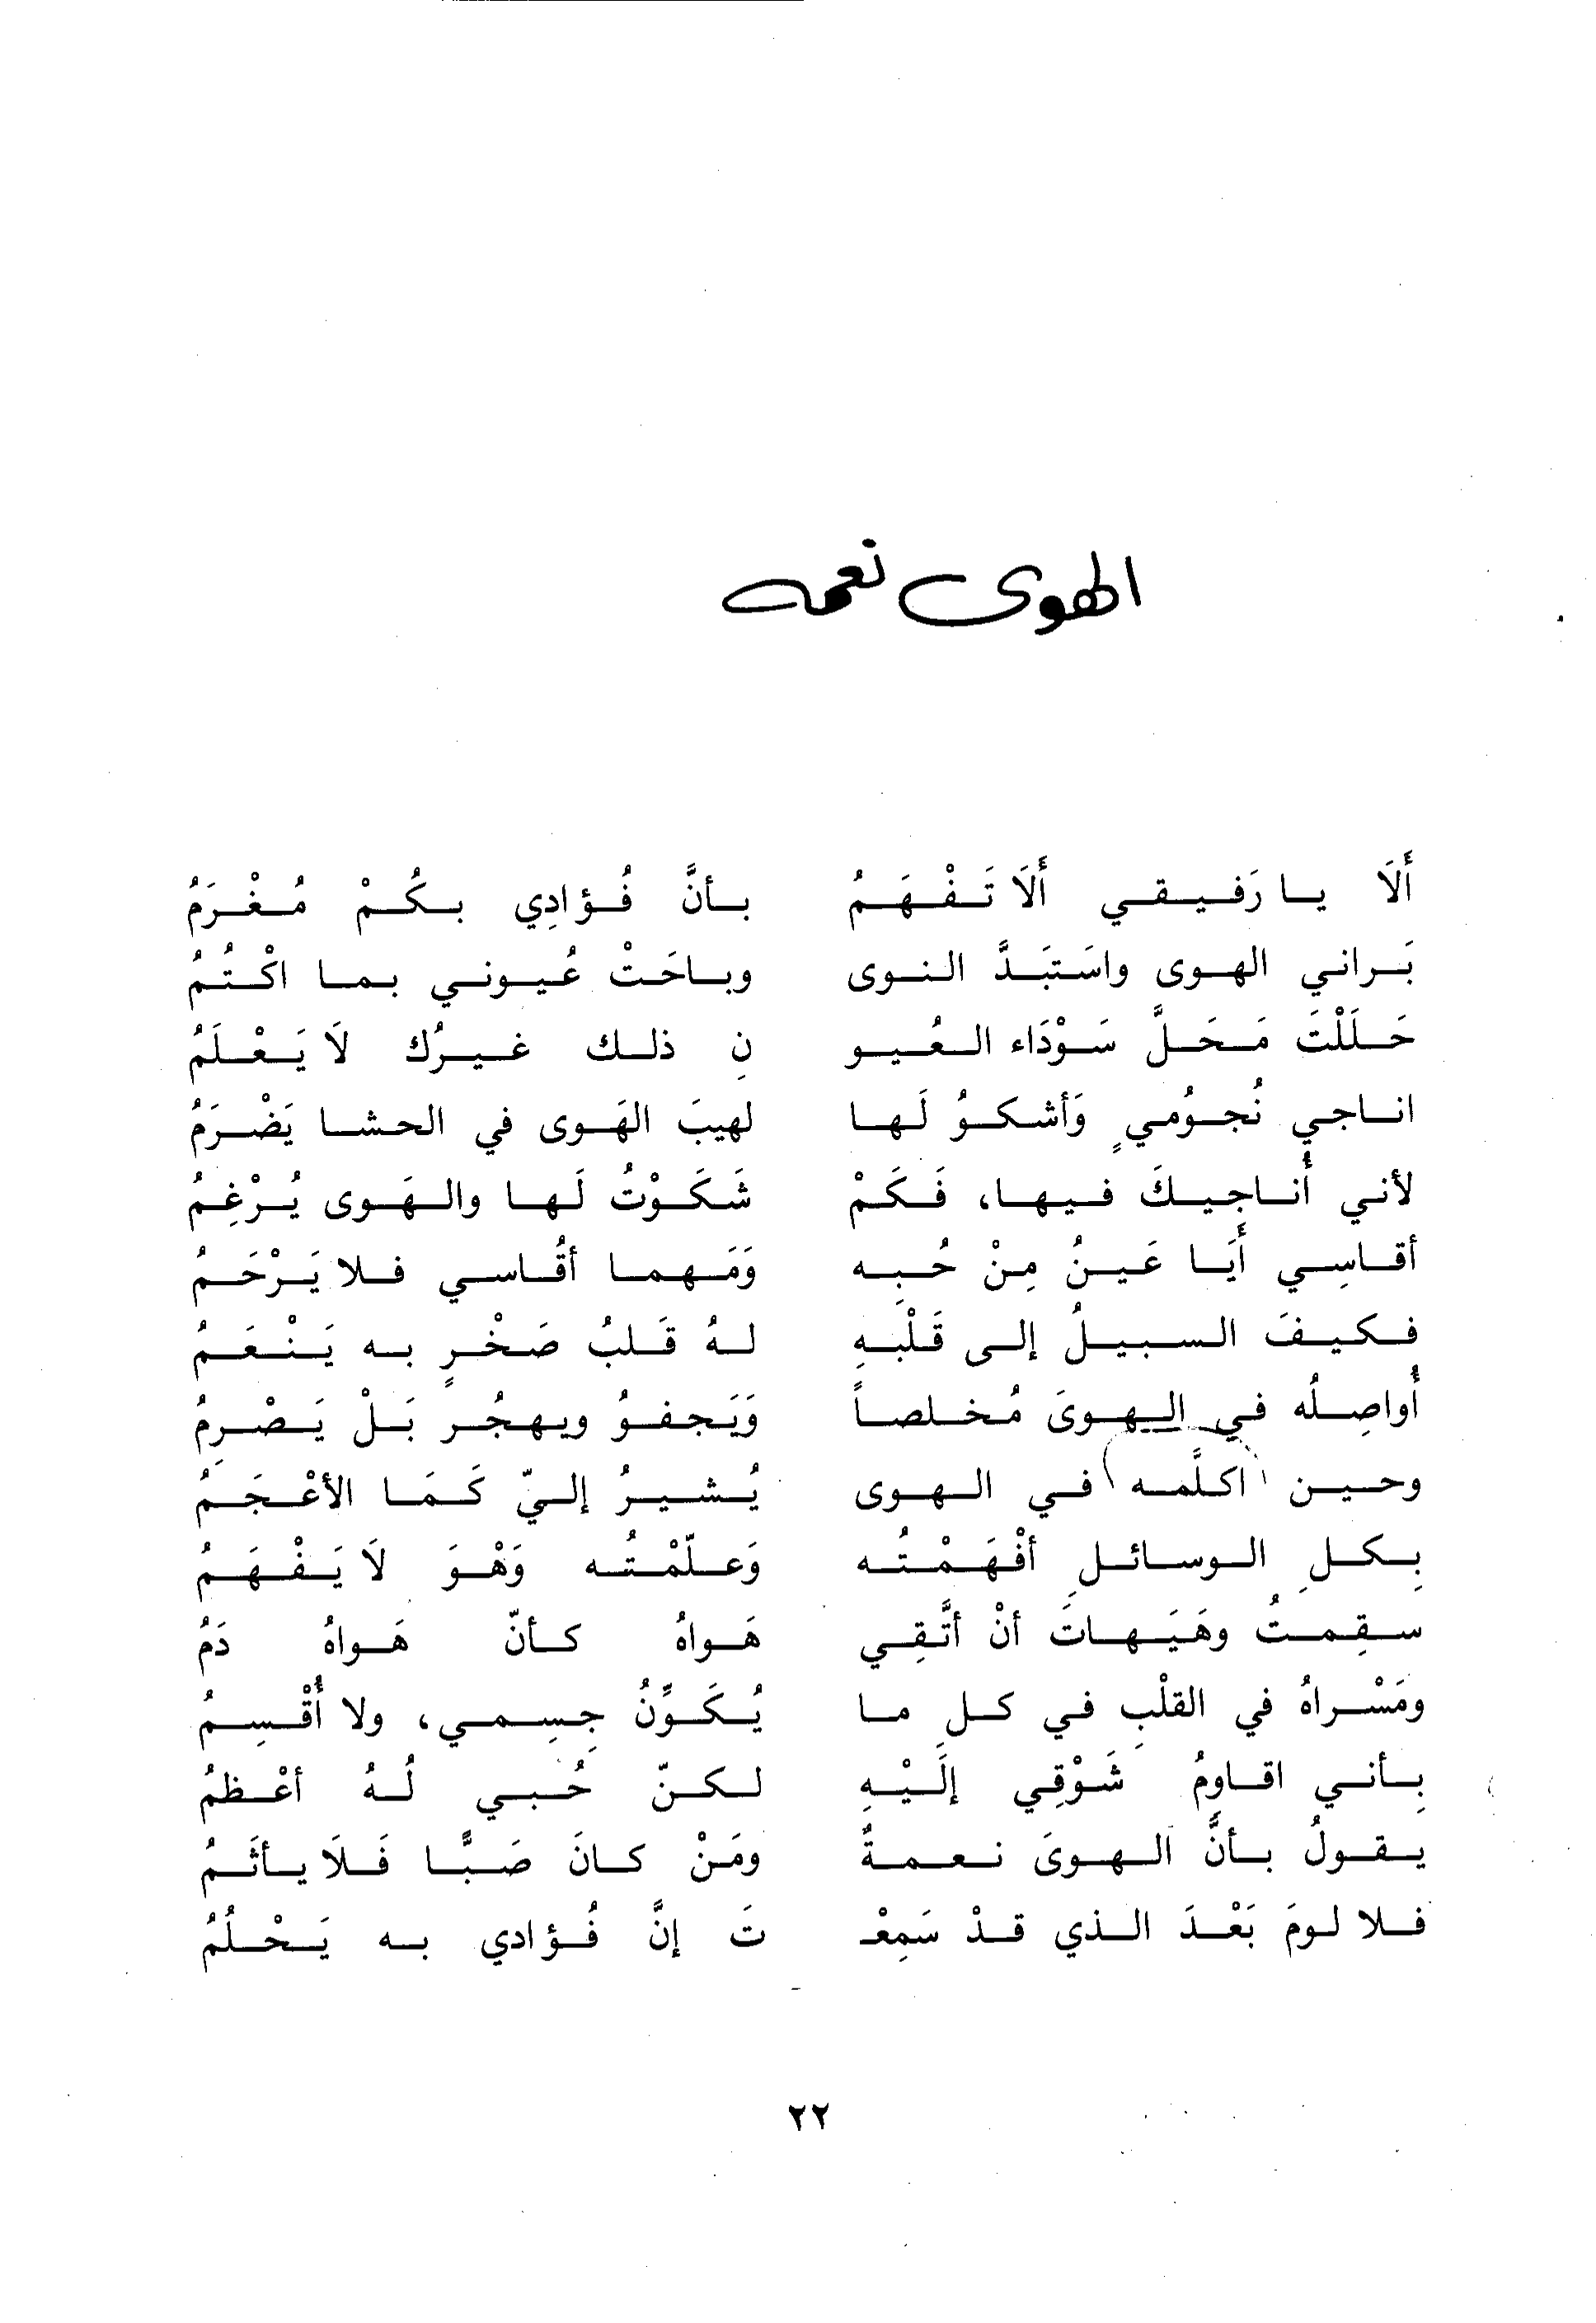 الهوى نعمه
أَلَا يا رَفيقي أَلَا تَفْهَمُ بأنَّ فُؤادِي بكُمْ مُغْرَمُ
بَراني الهوى واسَتبَدَّ النوى وباحَتْ عُيوني بما اكْتُمُ
حَلَلْتَ مَحَلَّ سَوْدَاء العُيو نِ ذلك غيرُك لَا يَعْلَمُ
اناجي نُجوُمي وَأشكوُ لَها لهيبَ الهَوى في الحشا يَضْرَمُ
لأني أُناجيكَ فيها، فَكَمْ شَكَوْتُ لَها والهَوى يُرْغِمُ
أقاسِي أَيَا عَينُ مِنْ حُبِه وَمَهما أقُاسي فلا يَرْحَمُ
فكيفَ السبيلُ إلى قَلْبَهِ لهُ قَلبُ صَخْرٍ به يَنْعَمُ
أُواصِلُه في الهوىَ مُخلصاً وَيَجفوُ ويهجُر بَلْ يَصْرِمُ
وحين اكلَّمه في الهوى يُشيرُ إليّ كَمَا الأعْجَمُ
بِكلِ الوسائلِ أفْهَمْتُه وَعلّمْتُه وَهْوَ لَا يَفْهَمُ
سقِمتُ وهَيَهاتَ أنْ أتَّقِي هَواهُ كأنّ هَواهُ دَمُ
ومَسْراهُ في القلْبِ في كلِ ما يُكَوِّنُ جِسِمي، ولا أُقْسِمُ
بِأني اقاوِمُ شَوْقِي إلَيْهِ لكنّ حُبي لُهُ أعْظمُ
يقولُ بأنَّ الهوىَ نعمةٌ ومَنْ كانَ صَبًّا فَلَا يأثَمُ
فلا لومَ بَعْدَ الذي قدْ سَمِعْـ تَ إنَّ فُؤادي به يَحْلُمُ
٢٢